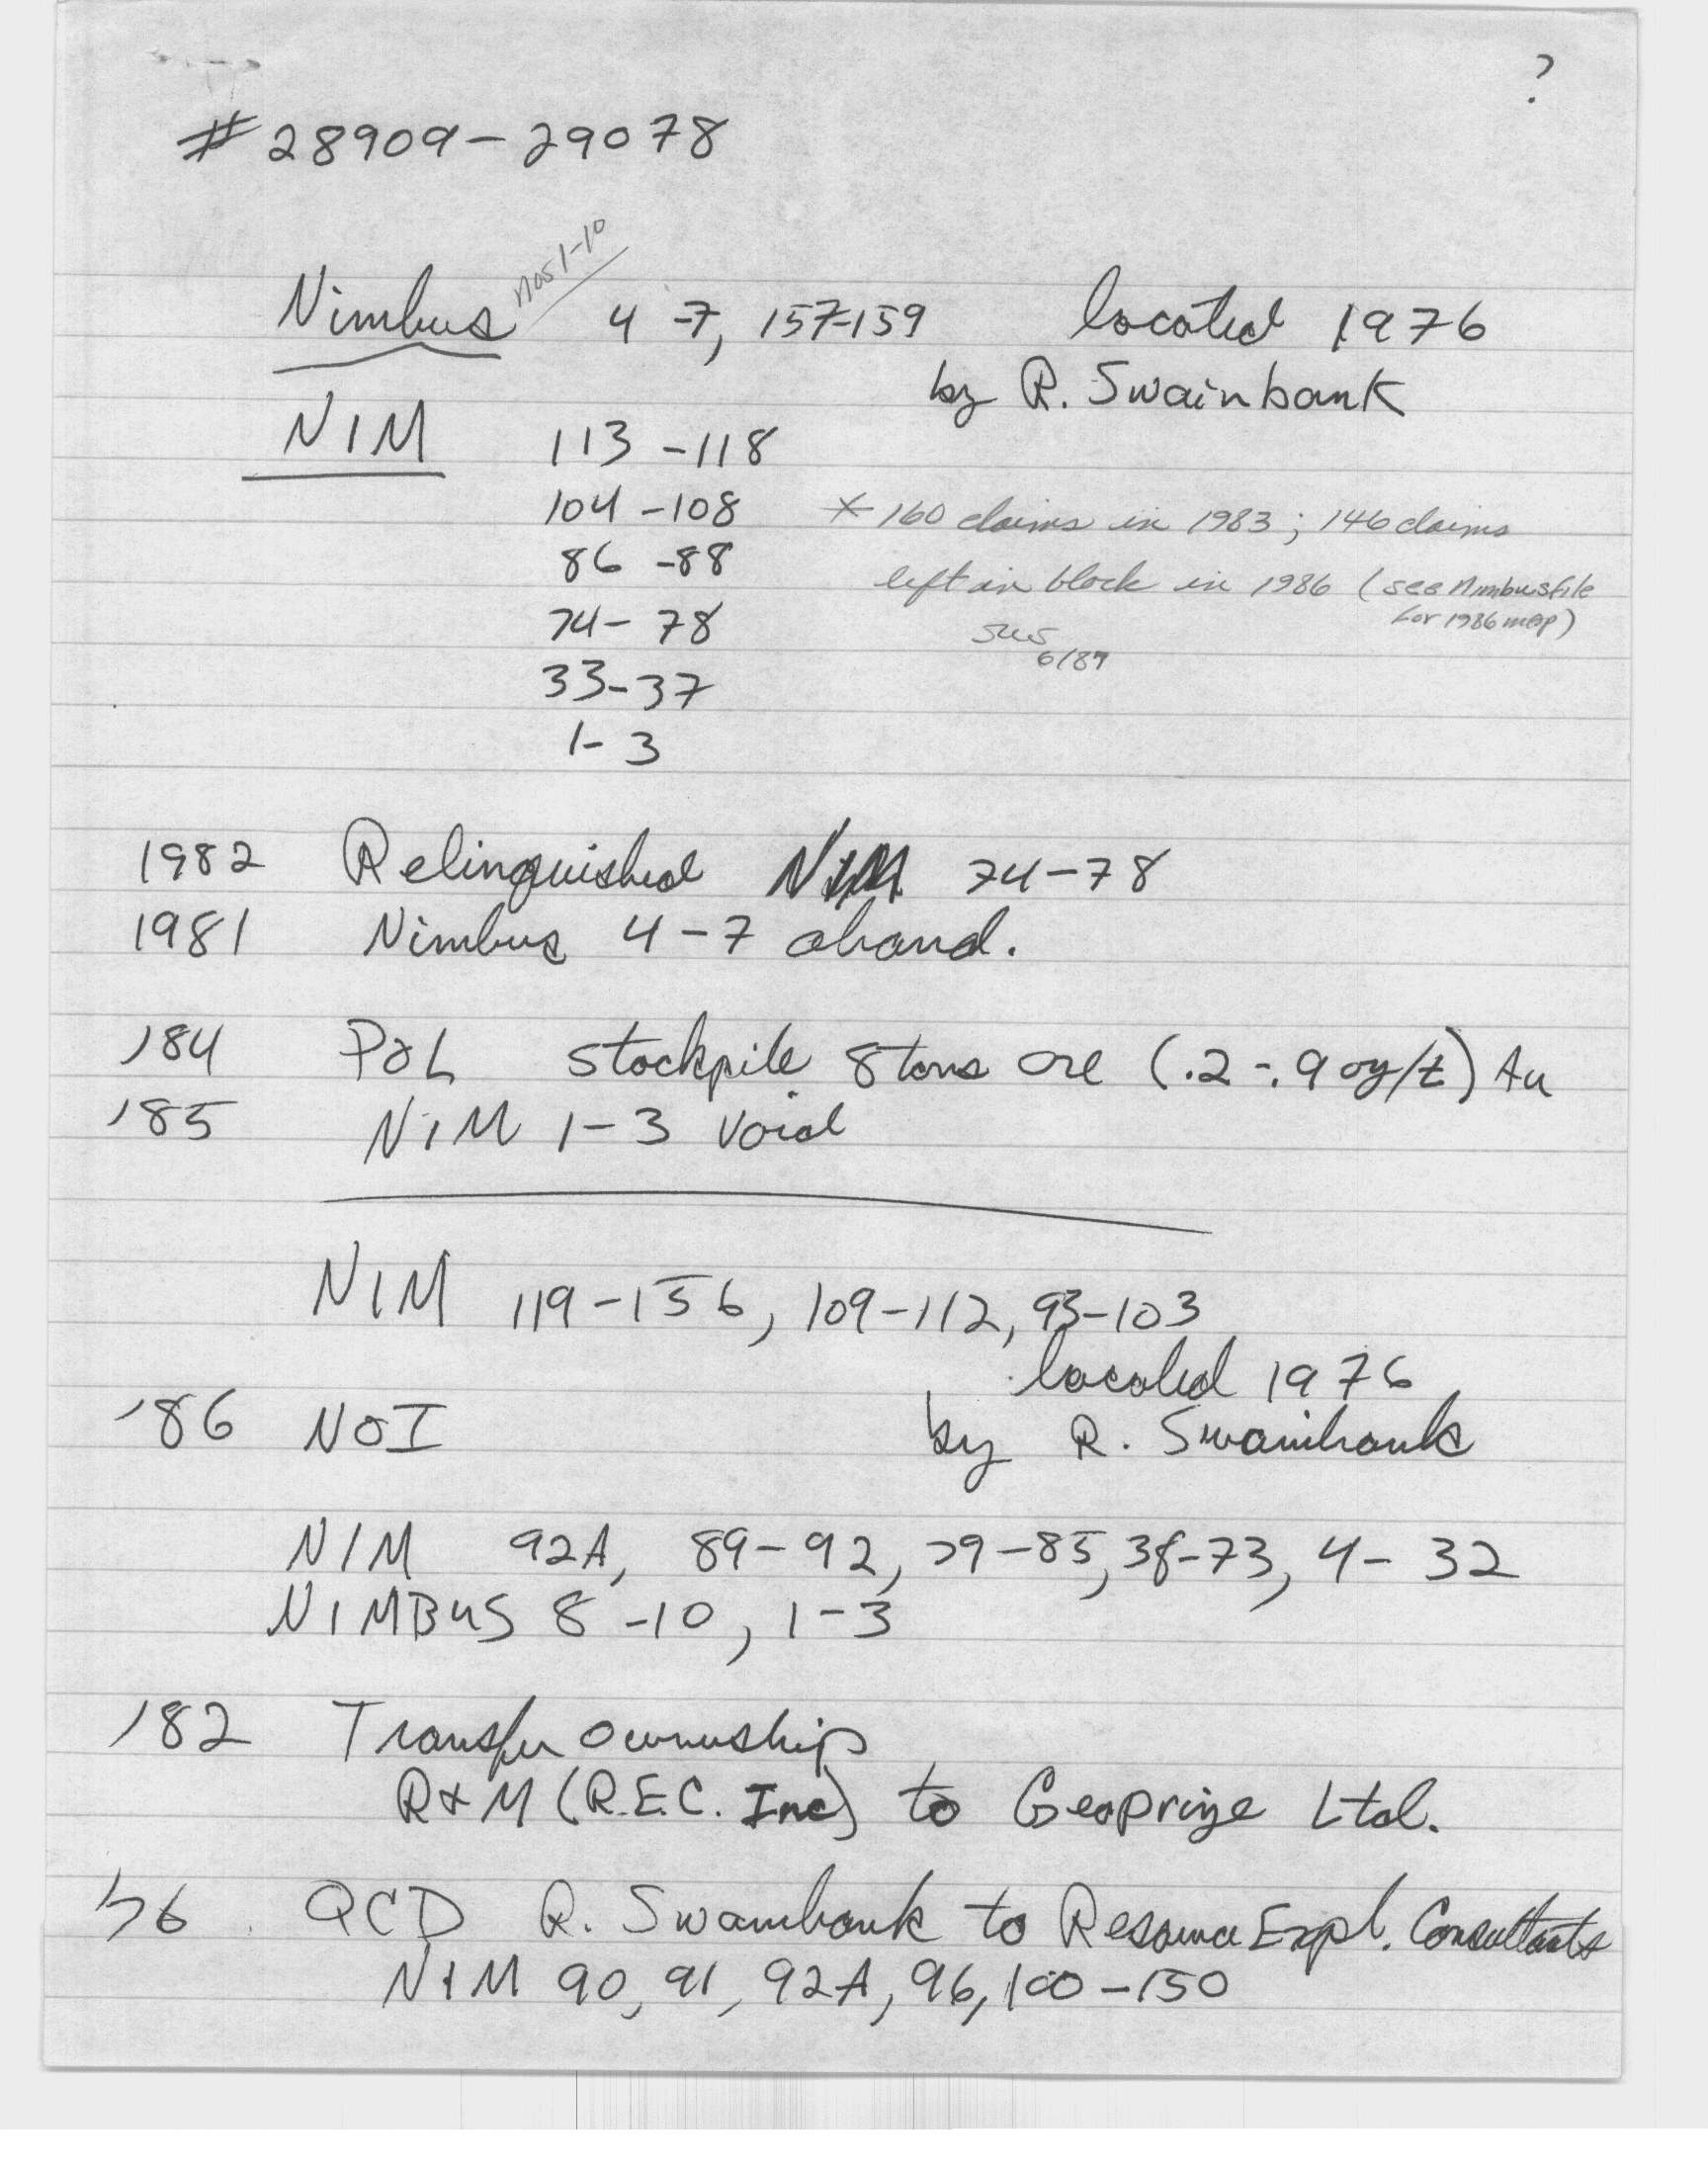 ?
# 28909-29078
Nimbus nos 1-10 4-7, 157-159 located 1976
by R. Swainbank
NIM 113-118
104-108 * 160 claims in 1983; 146 claims
86-88 left in block in 1986 (see Nimbus file
for 1986 map)
74-78
6/89
33-37
1-3
1982 Relinquished NIM 74-78
1981 Nimbus 4-7 aband.
'84 POL stockpile 8 tons ore (.2-.9 oz/t) Au
'85 NIM 1-3 Void
NIM 119-156, 109-112, 93-103
located 1976
'86 NOI by R. Swainbank
NIM 92A, 89-92, 79-85, 38-73, 4-32
NIMBUS 8-10, 1-3
'82 Transfer ownership
R+M (R.E.C. Inc) to Geoprize Ltd.
'76 QCD R. Swainbank to Resource Expl. Consultants
NIM 90, 91, 92A, 96, 100-150